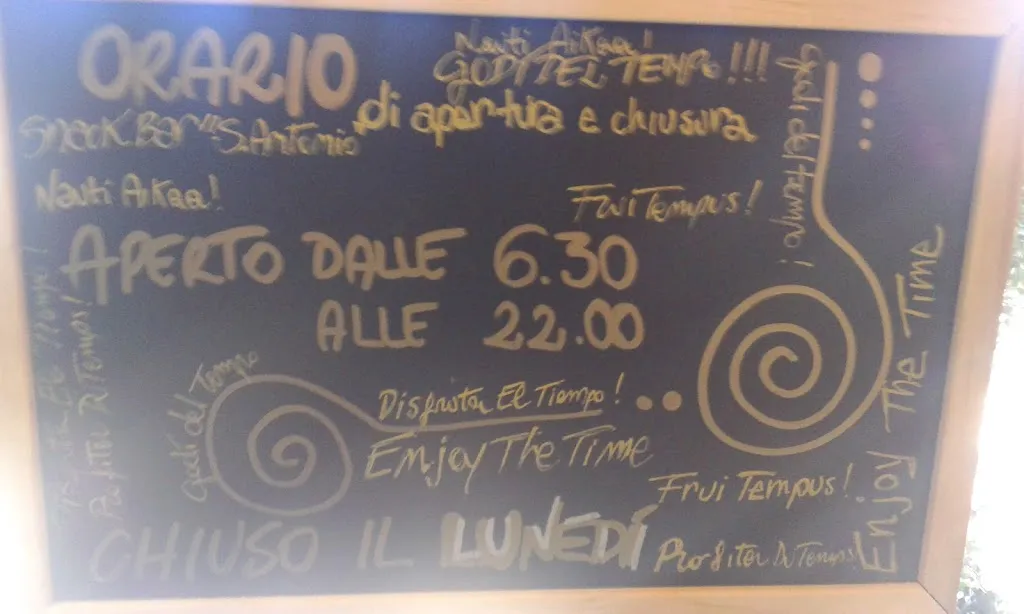 ORARIO
Nauti Aikaa!
GODI DEL TEMPO!!!
di apertura e chiusura
Snack Bar "S. Antonio"
Godi del tempo!
Nauti Aikaa!
Frui Tempus!
APERTO DALLE 6.30
ALLE 22.00
Enjoy The Time
Godi del Tempo
Disfrutar El Tiempo!
Enjoy The Time
Frui Tempus!
CHIUSO IL LUNEDÍ
Profiter Du Temps!